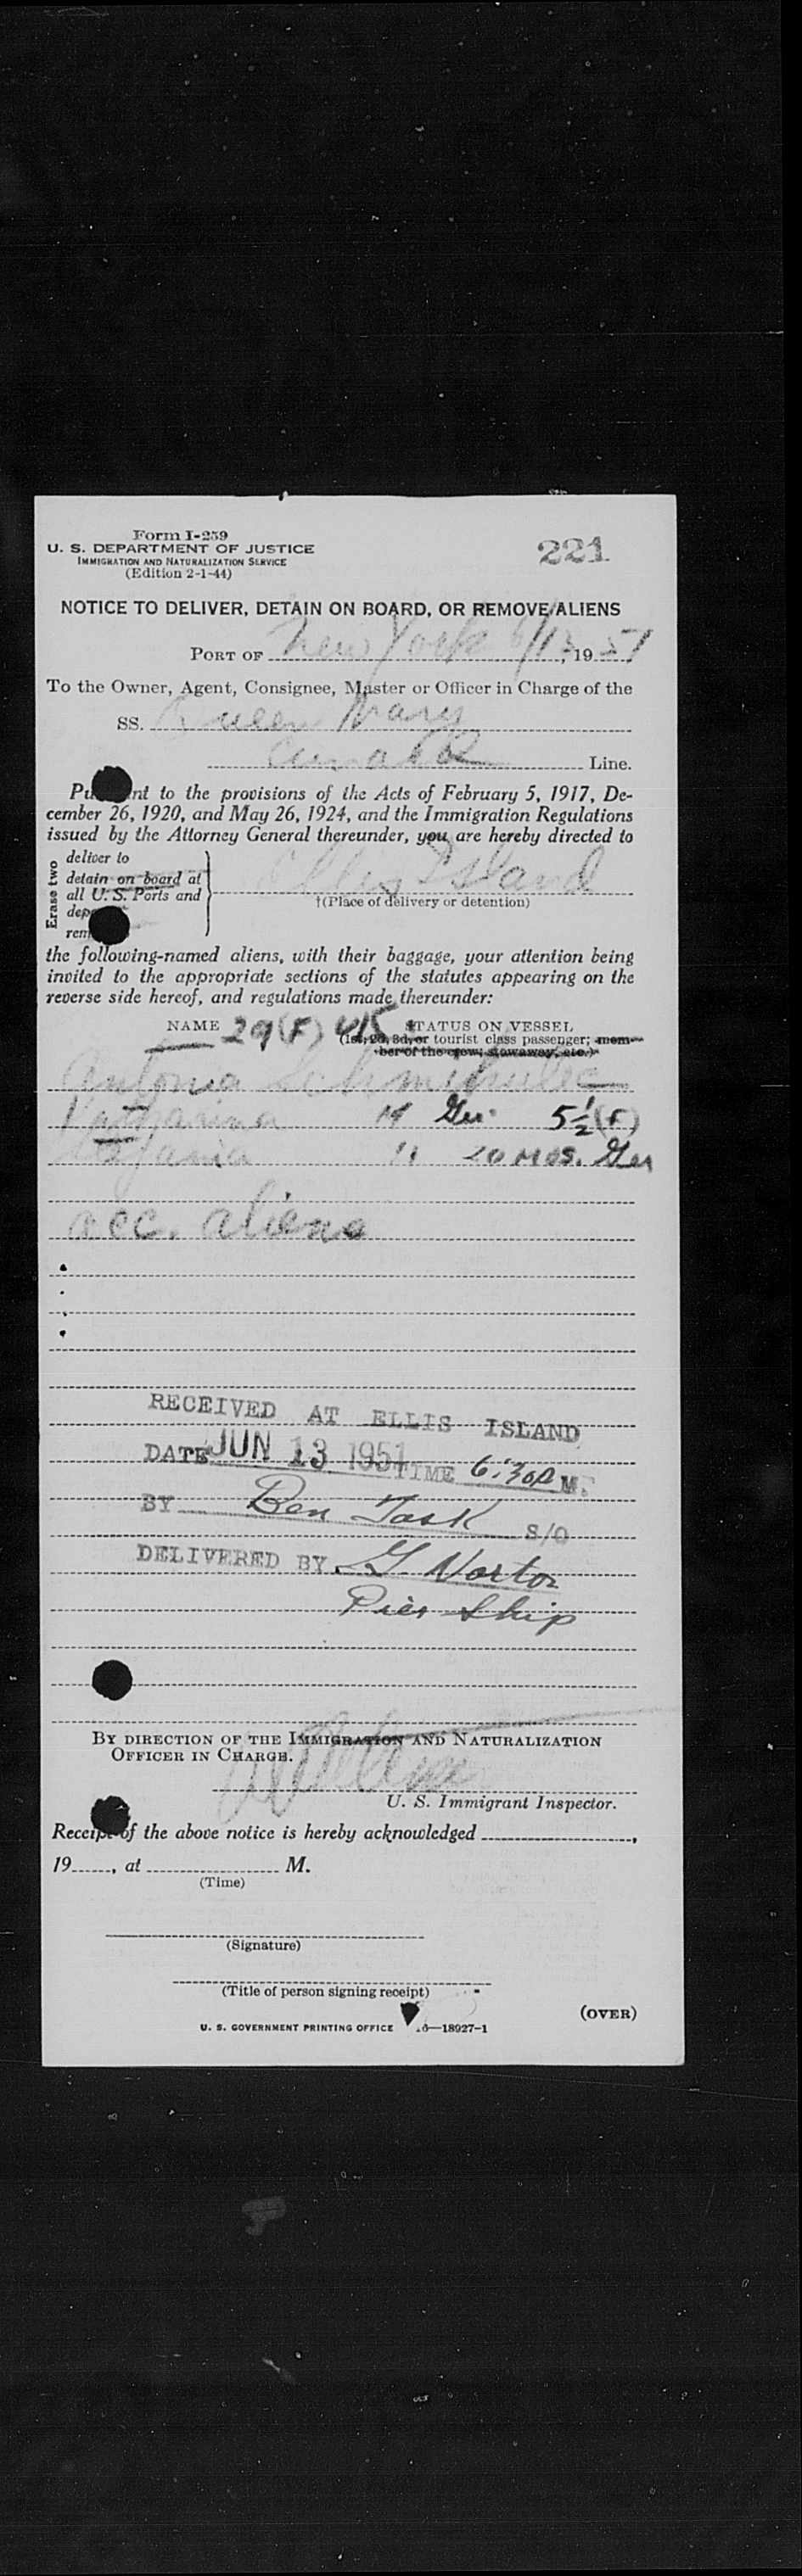 Form I-259
U. S. DEPARTMENT OF JUSTICE
IMMIGRATION AND NATURALIZATION SERVICE
(Edition 2-1-44)
221
NOTICE TO DELIVER, DETAIN ON BOARD, OR REMOVE ALIENS
PORT OF New York 6/13, 1951
To the Owner, Agent, Consignee, Master or Officer in Charge of the
SS. Queen Mary
Cunard Line.
Pu nt to the provisions of the Acts of February 5, 1917, De-
cember 26, 1920, and May 26, 1924, and the Immigration Regulations
issued by the Attorney General thereunder, you are hereby directed to
Erase two
deliver to
detain on board at
all U. S. Ports and
dep
rem
Ellis Island
†(Place of delivery or detention)
the following-named aliens, with their baggage, your attention being
invited to the appropriate sections of the statutes appearing on the
reverse side hereof, and regulations made thereunder:
NAME 29 (F) STATUS ON VESSEL
(1st, 2d, 3d, or tourist class passenger; mem-
ber of the crew; stowaway, etc.)
Antonia
Katharina Ger 5½ (F)
" 20 mos. Ger
acc. aliens
RECEIVED AT ELLIS ISLAND
DATE JUN 13 1951 TIME 6:30P M.
BY Ben Task S/O
DELIVERED BY G. Norton
Pier Ship
BY DIRECTION OF THE IMMIGRATION AND NATURALIZATION
OFFICER IN CHARGE.
U. S. Immigrant Inspector.
Receipt of the above notice is hereby acknowledged
19, at M.
(Time)
(Signature)
(Title of person signing receipt)
(OVER)
U. S. GOVERNMENT PRINTING OFFICE 16—18927-1